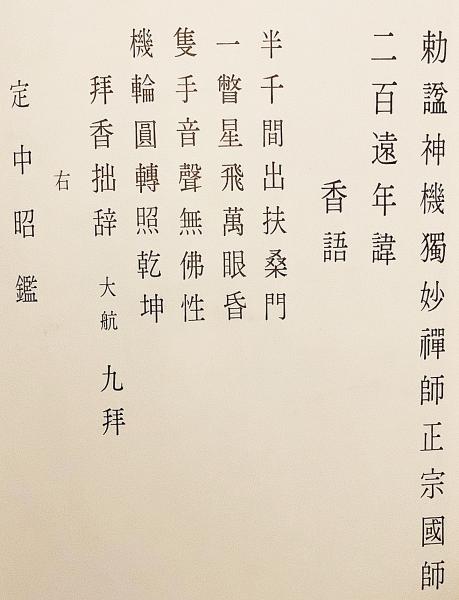 勅諡神機獨妙禪師正宗國師
二百遠年諱
香語
半千間出扶桑門
一瞥星飛萬眼昏
隻手音聲無佛性
機輪圓轉照乾坤
拜香拙辞 大航 九拜
右
定中昭鑑